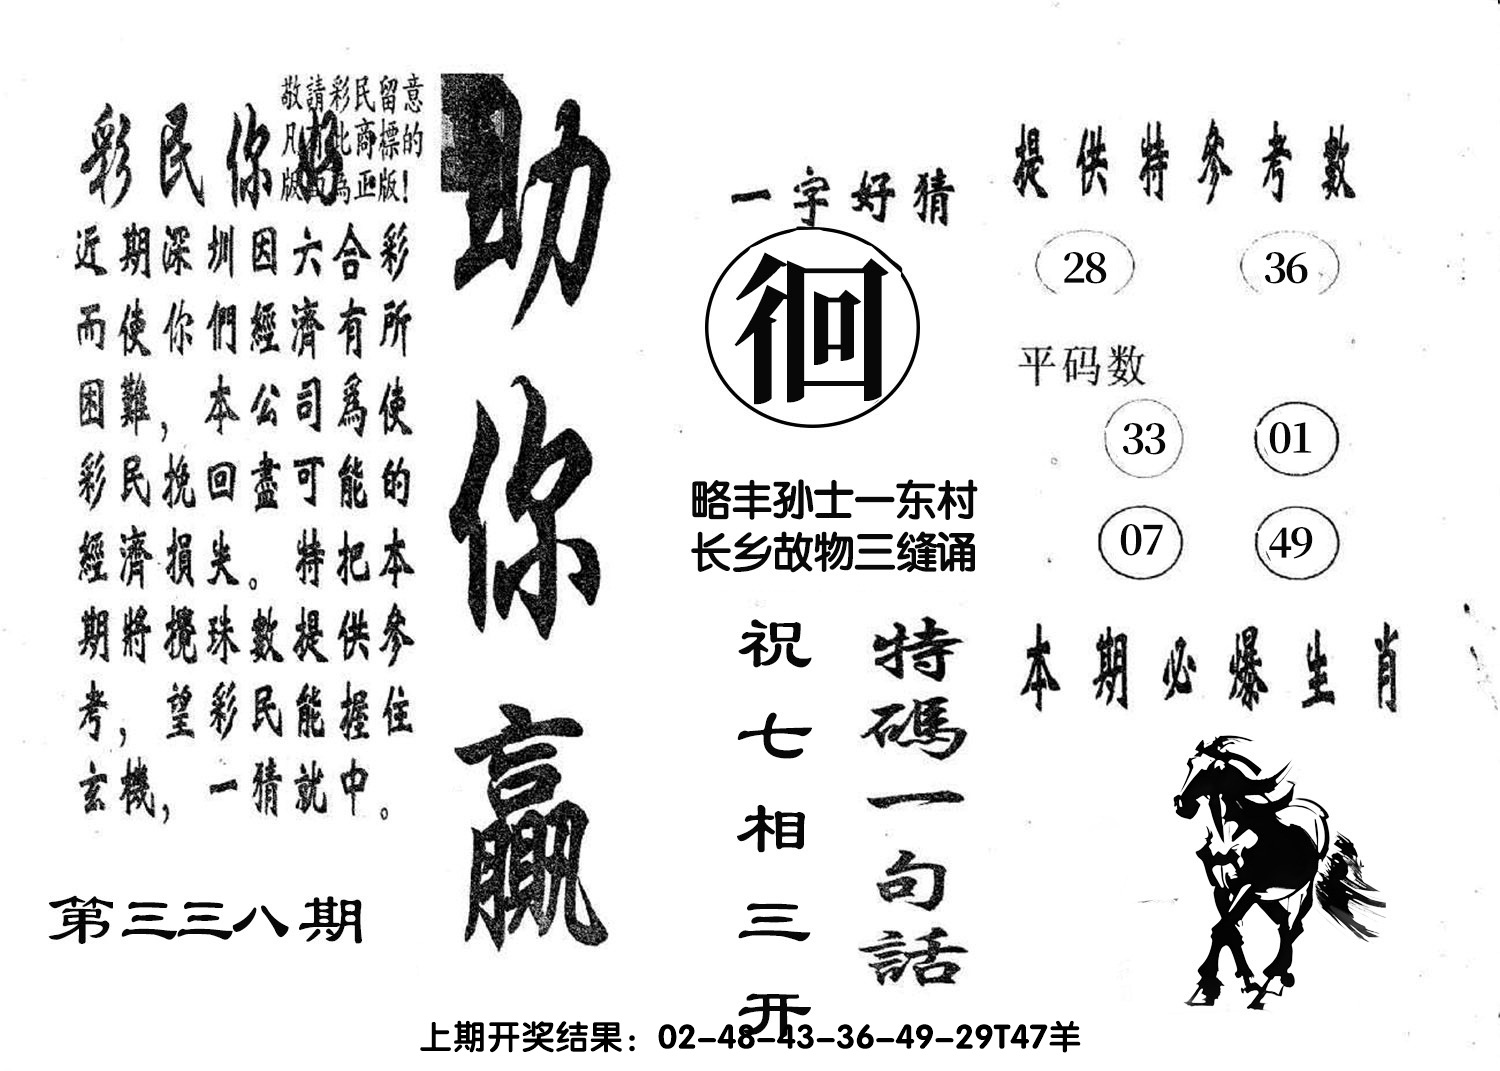 敬請彩民留意
凡有此商標的
版面為正版！
彩民你好
近期深圳因六合彩
而使你們經濟有所
困難，本公司爲使
彩民挽回盡可能的
經濟損失。特把本
期將攪珠數提供參
考，望彩民能握住
玄機，一猜就中。
第三三八期
助你赢
一字好猜
徊
略丰孙士一东村
长乡故物三缝诵
特碼一句話
祝七相三开
提供特參考數
28 36
平码数
33 01
07 49
本期必爆生肖
上期开奖结果：02-48-43-36-49-29T47羊